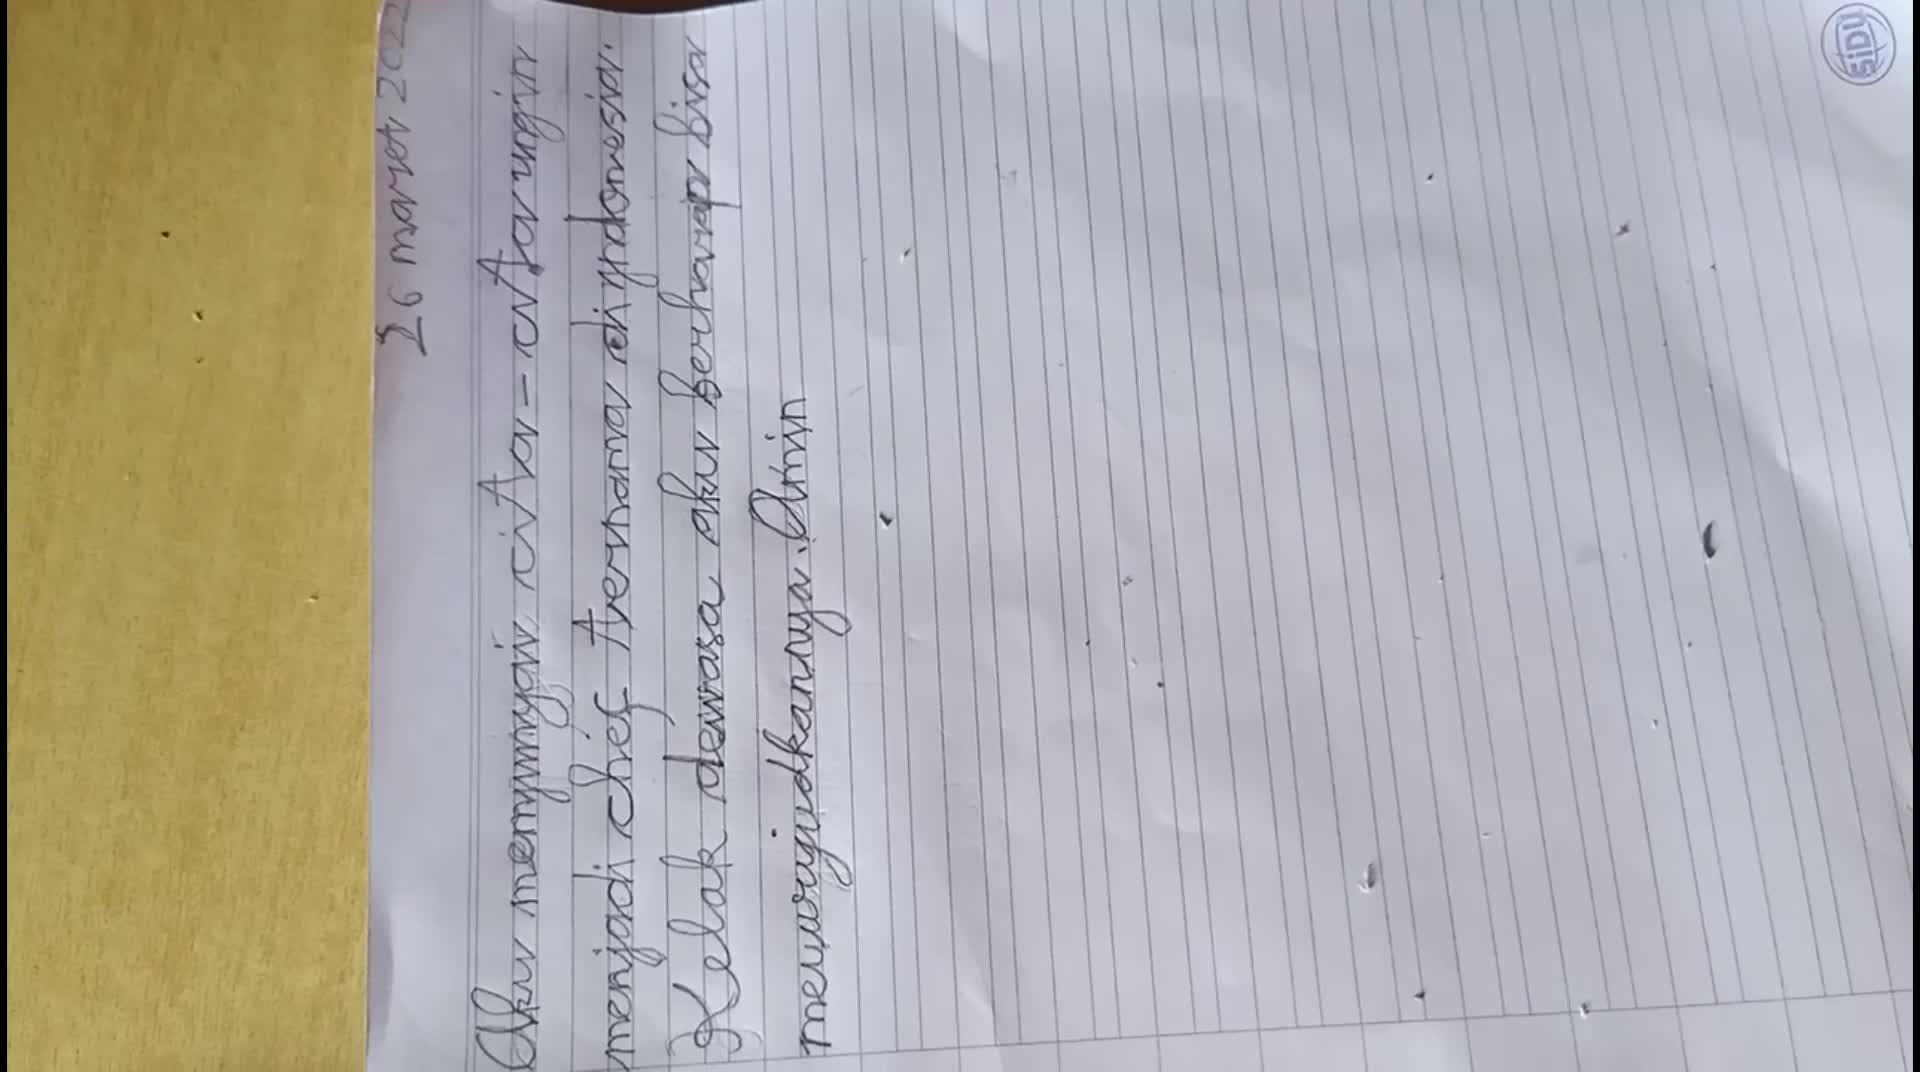 26 maret 202
Aku mempunyai cita - cita ingin
menjadi chef ternama di indonesia.
Kelak dewasa aku berharap bisa
mewujudkannya. Amin
SiDU